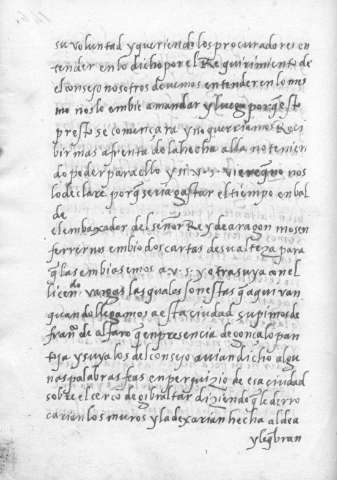 su voluntad y queriendo los procuradores en
tender en lo dicho por el Requirimiento de
el consejo nosotros devemos entender en lo mes
mo nos lo embie a mandar y luego porq̃ esto
presto se començara y no querriamos Reci
bir mas afrenta de la hecha alla no tenien
do poder para ello y si v. s. viere q̃ no nos
lo declare porq̃ seria gastar el tiempo en bal
de
el embaxador del señor Rey de aragon mosen
ferrer nos embio dos cartas de su alteza para
q̃ las embiasemos a v. s. y otra suya con el
licen.do vargas las quales son estas q̃ aqui van
quando llegamos a esta ciudad supimos de
fran.co de alfaro q̃ en presencia de gonçalo pan
toja y suya los del consejo avian dicho algu
nas palabras feas en perjuizio de esa ciudad
sobre el cerco de gibraltar diziendo q̃ le derro
carian los muros y la dexarian hecha aldea
y